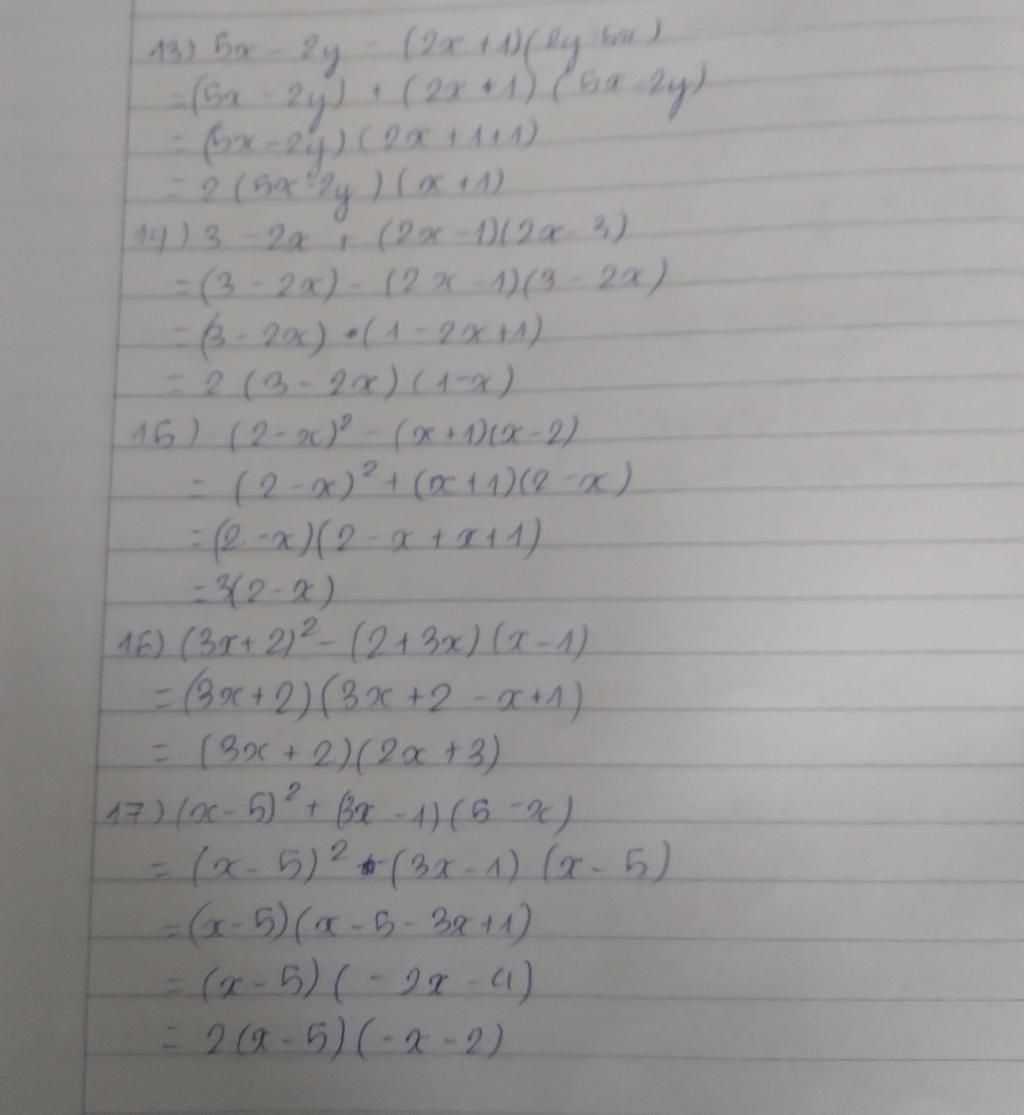 13) 5x - 2y - (2x+1)(2y-5x)
=(5x-2y) + (2x+1) (5x-2y)
= (5x-2y)(2x+1+1)
= 2(5x-2y)(x+1)
14) 3 - 2x + (2x-1)(2x-3)
=(3-2x) - (2x-1)(3-2x)
=(3-2x) · (1-2x+1)
= 2(3-2x)(1-x)
15) (2-x)² - (x+1)(x-2)
= (2-x)² + (x+1)(2-x)
=(2-x)(2-x+x+1)
=3(2-x)
16) (3x+2)² - (2+3x)(x-1)
=(3x+2)(3x+2-x+1)
= (3x+2)(2x+3)
17) (x-5)² + (3x-1)(5-x)
= (x-5)² - (3x-1) (x-5)
=(x-5)(x-5-3x+1)
= (x-5)(-2x-4)
= 2(x-5)(-x-2)